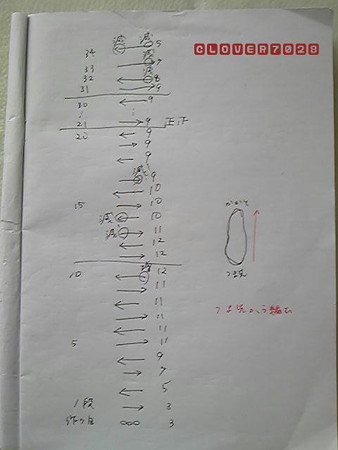 CLOVER7028
34 減 減 5
33 減 7
32 減 8
31 9
30 9
21 9 正正
20 9
9
9
減 9
10
15 10
減 10
減 11
12
12
10 増 12
11
11
11
11
5 11
9
7
5
1段 3
作り目 3
かかと
つま先
つま先から編む